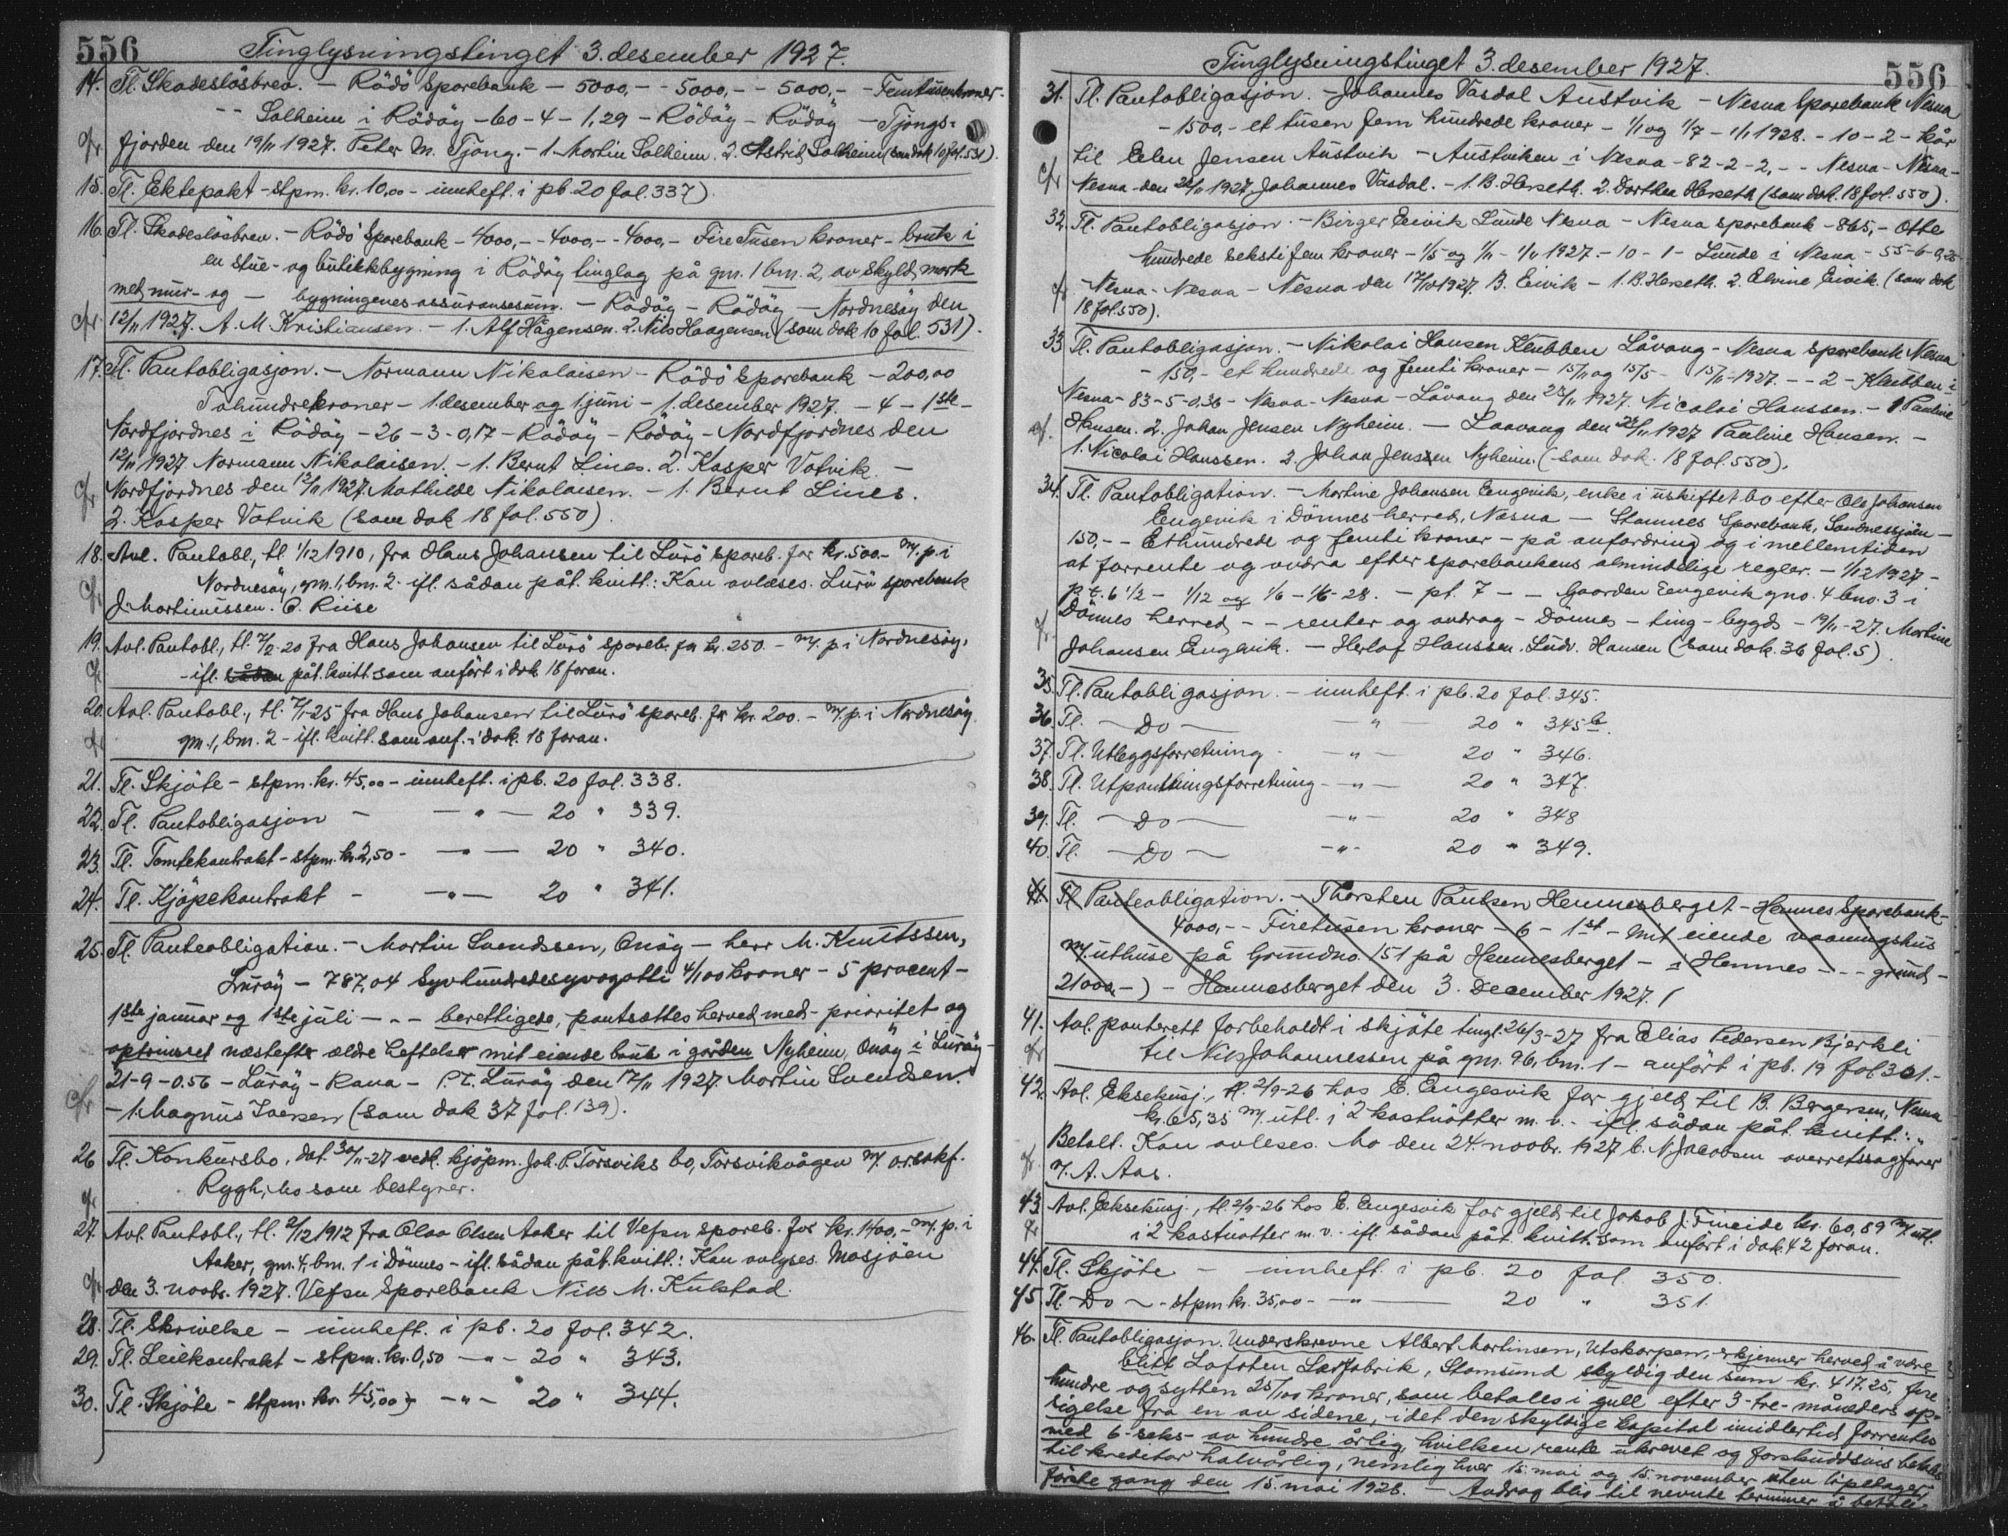 556
Tinglysningstinget 3. desember 1927.
14. Tl. Skadeslösbrev. - Rödö Sparebank - 5000,- - 5000,- - 5000,- - Femtusenkroner -
- - Solheim i Rödöy - 60 - 4 - 1,29 - Rödöy - Rödöy - Tjongs-
fjorden den 19/11 1927. Peter M. Tjong. - 1. Martin Solheim. 2. Astrid Solheim (som dok 10 fol. 531).
15. Tl. Ektepakt - stpm. kr. 10,00 - innheft. i pb. 20 fol. 337)
16. Tl. Skadeslösbrev. - Rödö Sparebank - 4000,- - 4000,- - 4000,- Fire Tusen kroner - bruk i
en stue- og butikkbygning i Rödöy tinglag på gm. 1 bm. 2 av skyld mark
med mur- og - bygningenes assuransesum. - Rödöy - Rödöy - Nordnesöy den
12/11 1927. A. M. Kristiansen. - 1. Alf Hågensen. 2. Nils Haagensen (som dok 10 fol. 531).
17. Tl. Pantobligasjon. - Normann Nikolaisen - Rödö Sparebank - 200,00
Tohundrekroner - 1. desember og 1 juni - 1. desember 1927. - 4 - 1ste -
Nordfjordnes i Rödöy - 26 - 3 - 0,17 - Rödöy - Rödöy - Nordfjordnes den
12/11 1927 Normann Nikolaisen. - 1. Bernt Lines. 2. Kasper Votvik -
Nordfjordnes den 12/11 1927. Mathilde Nikolaisen. - 1. Bernt Lines.
2. Kasper Votvik (som dok 18 fol. 550)
18. Avl. Pantobl., tl. 1/12 1910, fra Hans Johansen til Lurö spareb. for kr. 500.- m/. p. i
Nordnesöy, gm. 1, bm. 2 - ifl. sådan påt. kvitt.: Kan avlæses. Lurö sparebank
J. Martinussen. O. Riise
19. Avl. Pantobl., tl. 7/2-20 fra Hans Johansen til Lurö spareb. for kr. 250.- m/. p. i Nordnesöy,
- ifl. sådan påt. kvitt. som anfört i dok 18 foran.
20. Avl. Pantobl., tl. 7/1-25 fra Hans Johansen til Lurö spareb. for kr. 200. - m/. p. i Nordnesöy
gm. 1, bm. 2 - ifl. kvitt. som anf. i dok. 18 foran.
21. Tl. Skjöte - stpm. kr. 45,00 - innheft. i pb. 20 fol. 338.
22. Tl. Pantobligasjon - - " - 20 " 339.
23. Tl. Tomtekontrakt - stpm. kr. 2,50 - - " - 20 " 340.
24. Tl. Kjöpekontrakt - - " - 20 " 341.
25. Tl. Panteobligation. - Martin Svendssen, Onöy - herr M. Knutssen,
Luröy - 787,04 Syvhundredesyvogotti 4/100 kroner - 5 procent -
1ste januar og 1ste juli - - - berettigede, pantsættes herved med - prioritet og
optrinsret næstefter ældre heftelser mit eiende bruk i gården Nyheim, Onöy i Luröy -
21 - 9 - 0.56 - Luröy - Rana - P.T. Luröy den 17/11 1927. Martin Svendsen.
- 1. Magnus Iversen (som dok 37 fol. 139).
26 Tl. Konkursbo, dat. 30/11-27 vedk. kjöpm. Joh. P. Torsviks bo, Torsvikvågen m/. o.r.sakf.
Rygh, Mo som bestyrer.
27. Avl. Pantobl., tl. 2/12 1912 fra Olaa Olsen Aaker til Vefsn spareb. for kr. 1400,- m/. p. i
Aaker, gm. 4, bm. 1 i Dönnes - ifl. sådan påt. kvitt.: Kan avlyses. Mosjöen
den 3. novbr. 1927. Vefsn Sparebank Nils M. Kulstad.
28. Tl. Skrivelse - innheft. i pb. 20 fol. 342.
29. Tl. Leiekontrakt - stpm. kr. 0,50 - " - 20 " 343.
30. Tl. Skjöte - stpm. kr. 45,00 - - " - 20 " 344.
Tinglysningstinget 3. desember 1927.
556
31. Tl. Pantobligasjon. - Johannes Vasdal Austvik - Nesna Sparebank Nesna
- 1500,- et tusen fem hundrede kroner - 1/1 og 1/7 - 1/1 1928. - 10 - 2 - kår
til Elen Jensen Austvik - Austviken i Nesna - 82 - 2 - 2, - - Nesna - Nesna -
Nesna den 22/11 1927, Johannes Vasdal. - 1. B. Herseth. 2. Dorthea Herseth (som dok. 18 fol. 550).
32. Tl. Pantobligasjon. - Birger Eivik Lunde Nesna - Nesna sparebank - 865,- Otte
hundrede sekstifem kroner - 1/5 og 1/11 - 1/11 1927 - 10 - 1 - Lunde i Nesna - 55-6-0,25
- Nesna - Nesna - Nesna den 17/10 1927. B. Eivik - 1. B. Herseth. 2. Elvine Eivik. (som dok
18 fol. 550).
33 Tl. Pantobligasjon. - Nikolai Hansen Klubben Låvang - Nesna Sparebank Nesna
- 150,- et hundrede og femti kroner - 15/11 og 15/5 - 15/11-1927. - - 2 - Klubben i
Nesna - 83 - 5 - 0,36 - Nesna - Nesna - Låvang den 22/11 1927. Nicolai Hanssen. - 1 Pauline
Hansen. 2. Johan Jensen Nyheim. - Laavang den 22/11 1927 Pauline Hansen. -
1. Nicolai Hanssen. 2. Johan Jenssen Nyheim. (- som dok. 18 fol. 550).
34. Tl. Pantobligation. - Martine Johansen Eengevik, enke i uskiftet bo efter Ole Johansen
Eugevik i Dönnes herred, Nesna - Stamnes Sparebank, Sandnessjöen -
150,- - Ethundrede og femti kroner - på anfordring og i mellemtiden
at forrente og avdra efter sparebankens almindelige regler. - 1/12 1927 -
p.t. 6 1/2 - 1/12 og 1/6 - 1/6 - 28. - pt. 7 - - Gaarden Eengevik gno. 4 bno. 3 i
Dönnes herred - - renter og avdrag - Dönnes - ting - bygds - 19/11 - 27. Martine
Johansen Engevik. - Herlof Hanssen. Ludv. Hansen (som dok. 36 fol. 5).
35. Tl. Pantobligasjon. - innheft. i pb. 20 fol. 345.
36. Tl. - Do - - " 20 " 345 b.
37. Tl. Utleggsforretning. - " - 20 " 346.
38. Tl. Utpantningsforretning - - " - 20 " 347.
39. Tl. - Do - - " - 20 " 348
40. Tl. - Do - - " - 20 " 349.
41. Tl. Panteobligation. - Thorsten Paulsen Hemnesberget - Hemnes Sparebank -
4000,- - Firetusen kroner - 6 - 1st - mit eiende vaaningshus
m/. uthuse på Grundno. 151 på Hemnesberget - i Hemnes - - - grund -
21000,-) - Hemnesberget den 3. December 1927. (
41. Avl. panterett forbeholdt i skjöte tingl. 26/3-27 fra Elias Pedersen Bjerkli
til Nils Johannessen på gm. 96, bm. 1 - anfört i pb. 19 fol 301. -
42. Avl. Eksekusj., tl. 2/9-26 hos E. Engesvik for gjeld til B. Bergersen, Nesna
kr. 65,35 m/. utl. i 2 kastnötter m. v. - ifl. sådan påt. kvitt.: "
Betalt. Kan avleses. Mo den 24. novbr. 1927 C. N. Jacobsen overretssagförer
/. A. Aas.
43 Avl. Eksekusj., tl. 2/9-26 hos E. Engesvik for gjeld til Jakob J. Fineide kr. 60,89 m/. utl.
i 2 kastnötter m. v. - ifl. sådan påt. kvitt. som anfört i dok. 42 foran.
44. Tl. Skjöte - innheft. i pb. 20 fol. 350.
45 Tl. - Do - - stpm kr. 35,00 - - " - 20 " 351.
46. Tl. Pantobligasjon. Underskrevne Albert Martinsen, Utskarpen, erkjenner herved å være
blitt Lofoten Særfabrik, Stamsund skyldig den sum kr. 417.25, fire
hundre og sytten 25/100 kroner, som betales i gull efter 3-tre-måneders op-
sigelse fra en av sidene, idet den skyldige kapital imidlertid forrentes
med 6-seks- av hundre årlig, hvilken rente ukrevet og forskuddsvis betales
til kreditor halvårlig, nemlig hver 15. mai og 15. november uten löpedager,
förste gang den 15. mai 1928. - Avdrag blir til nevnte terminer å betale.